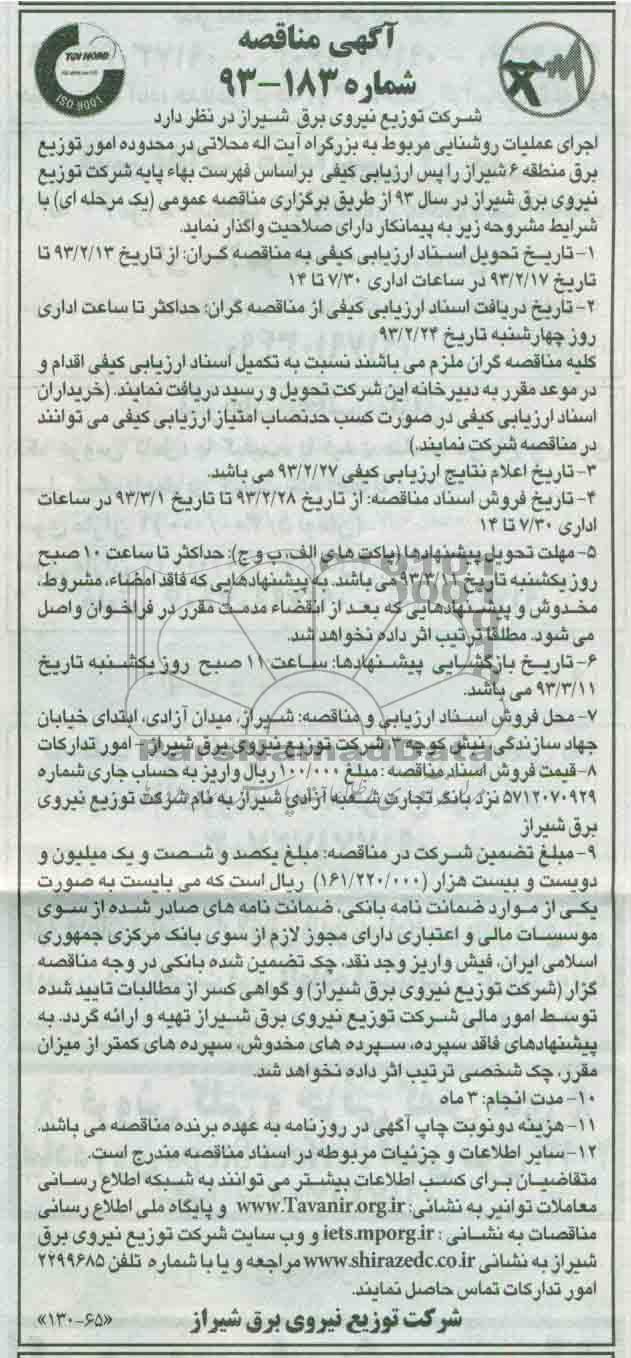 آگهی مناقصه
شماره ۱۸۳-۹۳
TUV NORD
شرکت توزیع نیروی برق شیراز در نظر دارد
اجرای عملیات روشنایی مربوط به بزرگراه آیت اله محلاتی در محدوده امور توزیع
برق منطقه ۶ شیراز را پس ارزیابی کیفی براساس فهرست بهاء پایه شرکت توزیع
نیروی برق شیراز در سال ۹۳ از طریق برگزاری مناقصه عمومی (یک مرحله ای) با
شرایط مشروحه زیر به پیمانکار دارای صلاحیت واگذار نماید.
۱- تاریخ تحویل اسناد ارزیابی کیفی به مناقصه گران: از تاریخ ۹۳/۲/۱۳ تا
تاریخ ۹۳/۲/۱۷ در ساعات اداری ۷/۳۰ تا ۱۴
۲- تاریخ دریافت اسناد ارزیابی کیفی از مناقصه گران: حداکثر تا ساعت اداری
روز چهارشنبه تاریخ ۹۳/۲/۲۴
کلیه مناقصه گران ملزم می باشند نسبت به تکمیل اسناد ارزیابی کیفی اقدام و
در موعد مقرر به دبیرخانه این شرکت تحویل و رسید دریافت نمایند. (خریداران
اسناد ارزیابی کیفی در صورت کسب حدنصاب امتیاز ارزیابی کیفی می توانند
در مناقصه شرکت نمایند.)
۳- تاریخ اعلام نتایج ارزیابی کیفی ۹۳/۲/۲۷ می باشد.
۴- تاریخ فروش اسناد مناقصه: از تاریخ ۹۳/۲/۲۸ تا تاریخ ۹۳/۳/۱ در ساعات
اداری ۷/۳۰ تا ۱۴
۵- مهلت تحویل پیشنهادها (پاکت های الف، ب و ج): حداکثر تا ساعت ۱۰ صبح
روز یکشنبه تاریخ ۹۳/۳/۱۱ می باشد. به پیشنهادهایی که فاقد امضاء، مشروط،
مخدوش و پیشنهادهایی که بعد از انقضاء مدت مقرر در فراخوان واصل
می شود، مطلقا ترتیب اثر داده نخواهد شد.
۶- تاریخ بازگشایی پیشنهادها: ساعت ۱۱ صبح روز یکشنبه تاریخ
۹۳/۳/۱۱ می باشد.
۷- محل فروش اسناد ارزیابی و مناقصه: شیراز، میدان آزادی، ابتدای خیابان
جهاد سازندگی، نبش کوچه ۳، شرکت توزیع نیروی برق شیراز - امور تدارکات
ParsNamadData
۸- قیمت فروش اسناد مناقصه: مبلغ ۱۰۰/۰۰۰ ریال واریز به حساب جاری شماره
۵۷۱۲۰۷۰۹۲۹ نزد بانک تجارت شعبه آزادی شیراز به نام شرکت توزیع نیروی
برق شیراز
۹- مبلغ تضمین شرکت در مناقصه: مبلغ یکصد و شصت و یک میلیون و
دویست و بیست هزار (۱۶۱/۲۲۰/۰۰۰) ریال است که می بایست به صورت
یکی از موارد ضمانت نامه بانکی، ضمانت نامه های صادر شده از سوی
موسسات مالی و اعتباری دارای مجوز لازم از سوی بانک مرکزی جمهوری
اسلامی ایران، فیش واریز وجه نقد، چک تضمین شده بانکی در وجه مناقصه
گزار (شرکت توزیع نیروی برق شیراز) و گواهی کسر از مطالبات تایید شده
توسط امور مالی شرکت توزیع نیروی برق شیراز تهیه و ارائه گردد. به
پیشنهادهای فاقد سپرده، سپرده های مخدوش، سپرده های کمتر از میزان
مقرر، چک شخصی ترتیب اثر داده نخواهد شد.
۱۰- مدت انجام: ۳ ماه
۱۱- هزینه دو نوبت چاپ آگهی در روزنامه به عهده برنده مناقصه می باشد.
۱۲- سایر اطلاعات و جزئیات مربوطه در اسناد مناقصه مندرج است.
متقاضیان برای کسب اطلاعات بیشتر می توانند به شبکه اطلاع رسانی
معاملات توانیر به نشانی: www.Tavanir.org.ir و پایگاه ملی اطلاع رسانی
مناقصات به نشانی: iets.mporg.ir و وب سایت شرکت توزیع نیروی برق
شیراز به نشانی www.shirazedc.co.ir مراجعه و یا با شماره تلفن ۲۲۹۹۶۸۵
امور تدارکات تماس حاصل نمایند.
شرکت توزیع نیروی برق شیراز
«۱۳۰-۶۵»